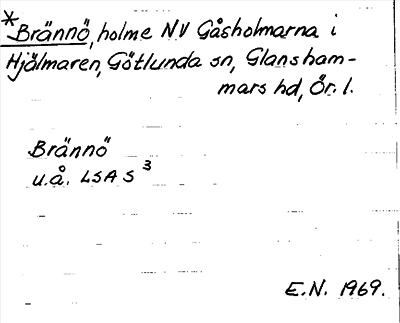 *Brännö, holme NV Gåsholmarna i
Hjälmaren, Götlunda sn, Glansham-
mars hd, Ör. l.
Brännö
u.å. LSA S 3
E.N. 1969.